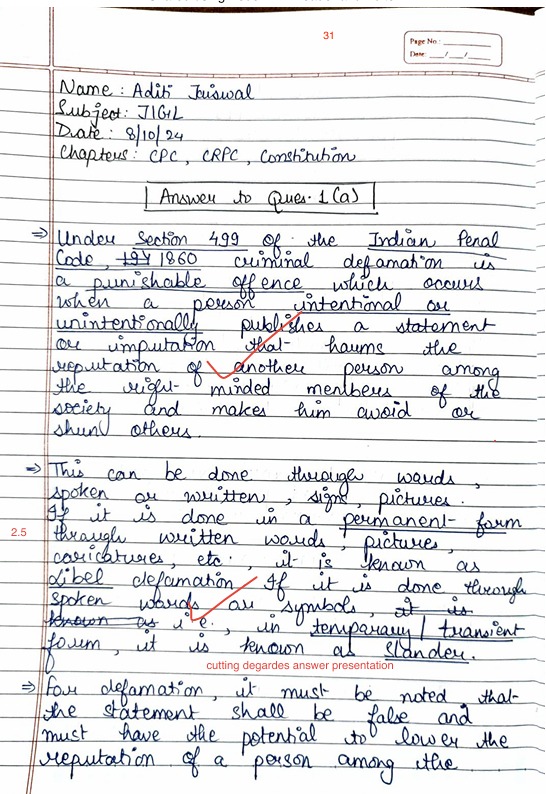 31
Page No.:
Date: __/__/__
Name : Aditi Juiswal
Subject: JIGL
Date : 8/10/24
Chapters : CPC , CRPC , Constitution
Answer to Ques. 1 (a)
⇒ Under Section 499 of the Indian Penal
Code , 197 1860 criminal defamation is
a punishable offence which occurs
when a person intentional or
unintentionally publishes a statement
or imputation that harms the
reputation of another person among
the right- minded members of the
society and makes him avoid or
shun others.
⇒ This can be done through words ,
spoken or written , signs , pictures .
If it is done in a permanent form
2.5
through written words , pictures ,
caricatures , etc. , it is known as
Libel defamation . If it is done through
spoken words or symbols, it is
known as i.e. , in temporary / transient
form , it is known as Slander.
cutting degardes answer presentation
⇒ For defamation , it must be noted that
the statement shall be false and
must have the potential to lower the
reputation of a person among the